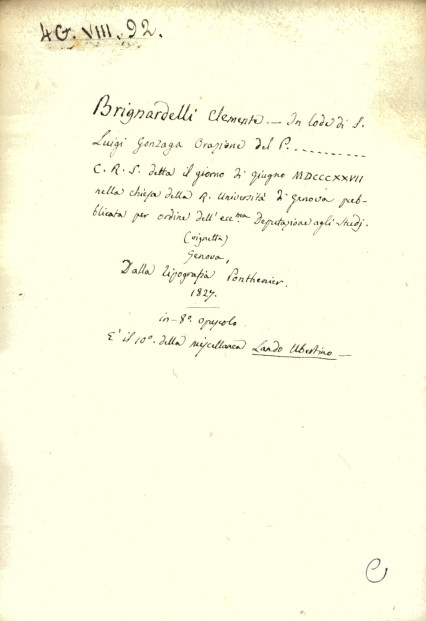 4G. VIII. 92.
Brignardelli Clemente. — In lode di S.
Luigi Gonzaga Orazione del P. ..........
C. R. S. detta il giorno di giugno MDCCCXXVII
nella chiesa della R. Università di Genova pub-
blicata per ordine dell'ecc.ma Deputazione agli studj.
(vignetta)
Genova,
Dalla tipografia Ponthenier.
1827.
in-8º. opuscolo.
E' il 10º. della miscellanea Lando Ubertino —
C